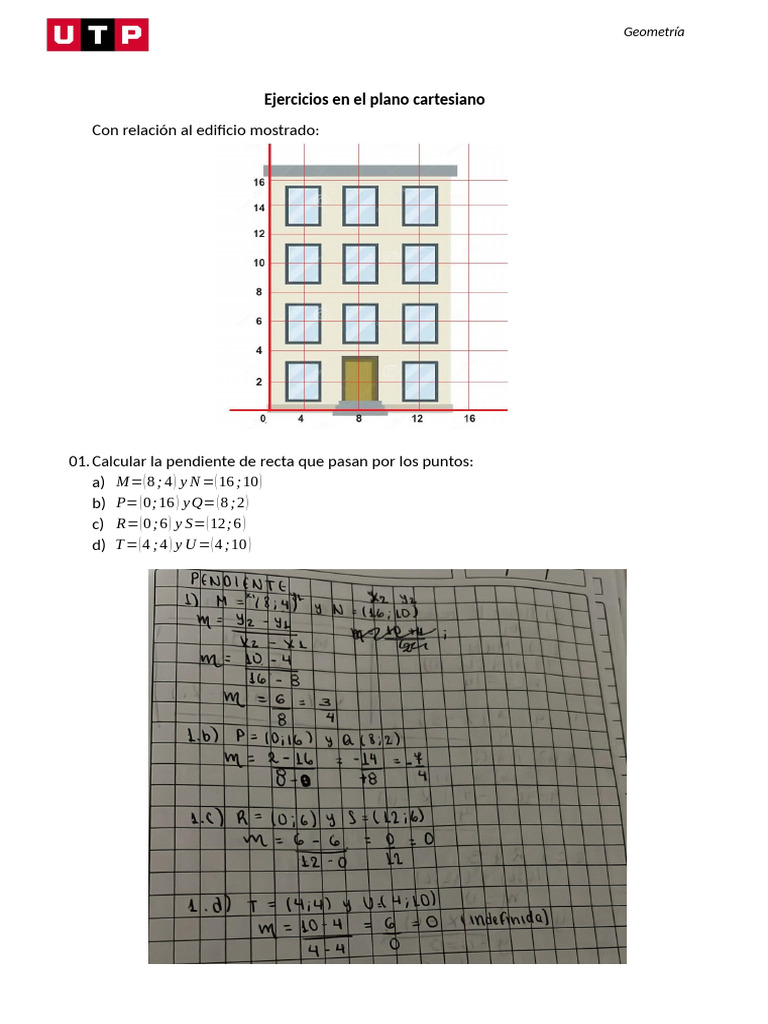 UTP
Geometría
Ejercicios en el plano cartesiano
Con relación al edificio mostrado:
16
14
12
10
8
6
4
2
0 4 8 12 16
01. Calcular la pendiente de recta que pasan por los puntos:
a) M=(8;4) y N=(16;10)
b) P=(0;16) y Q=(8;2)
c) R=(0;6) y S=(12;6)
d) T=(4;4) y U=(4;10)
PENDIENTE
x2 y2
1) M = (8;4) y N = (16;10)
m = y2 - y1 / x2 - x1
m = 10 - 4 / 16 - 8
m = 6/8 = 3/4
1.b) P = (0;16) y Q (8;2)
m = 2 - 16 / 8 - 0 = -14/+8 = -7/4
1.c) R = (0;6) y S = (12;6)
m = 6 - 6 / 12 - 0 = 0/12 = 0
1.d) T = (4;4) y U=(4;10)
m = 10 - 4 / 4 - 4 = 6/0 = 0 (indefinida)